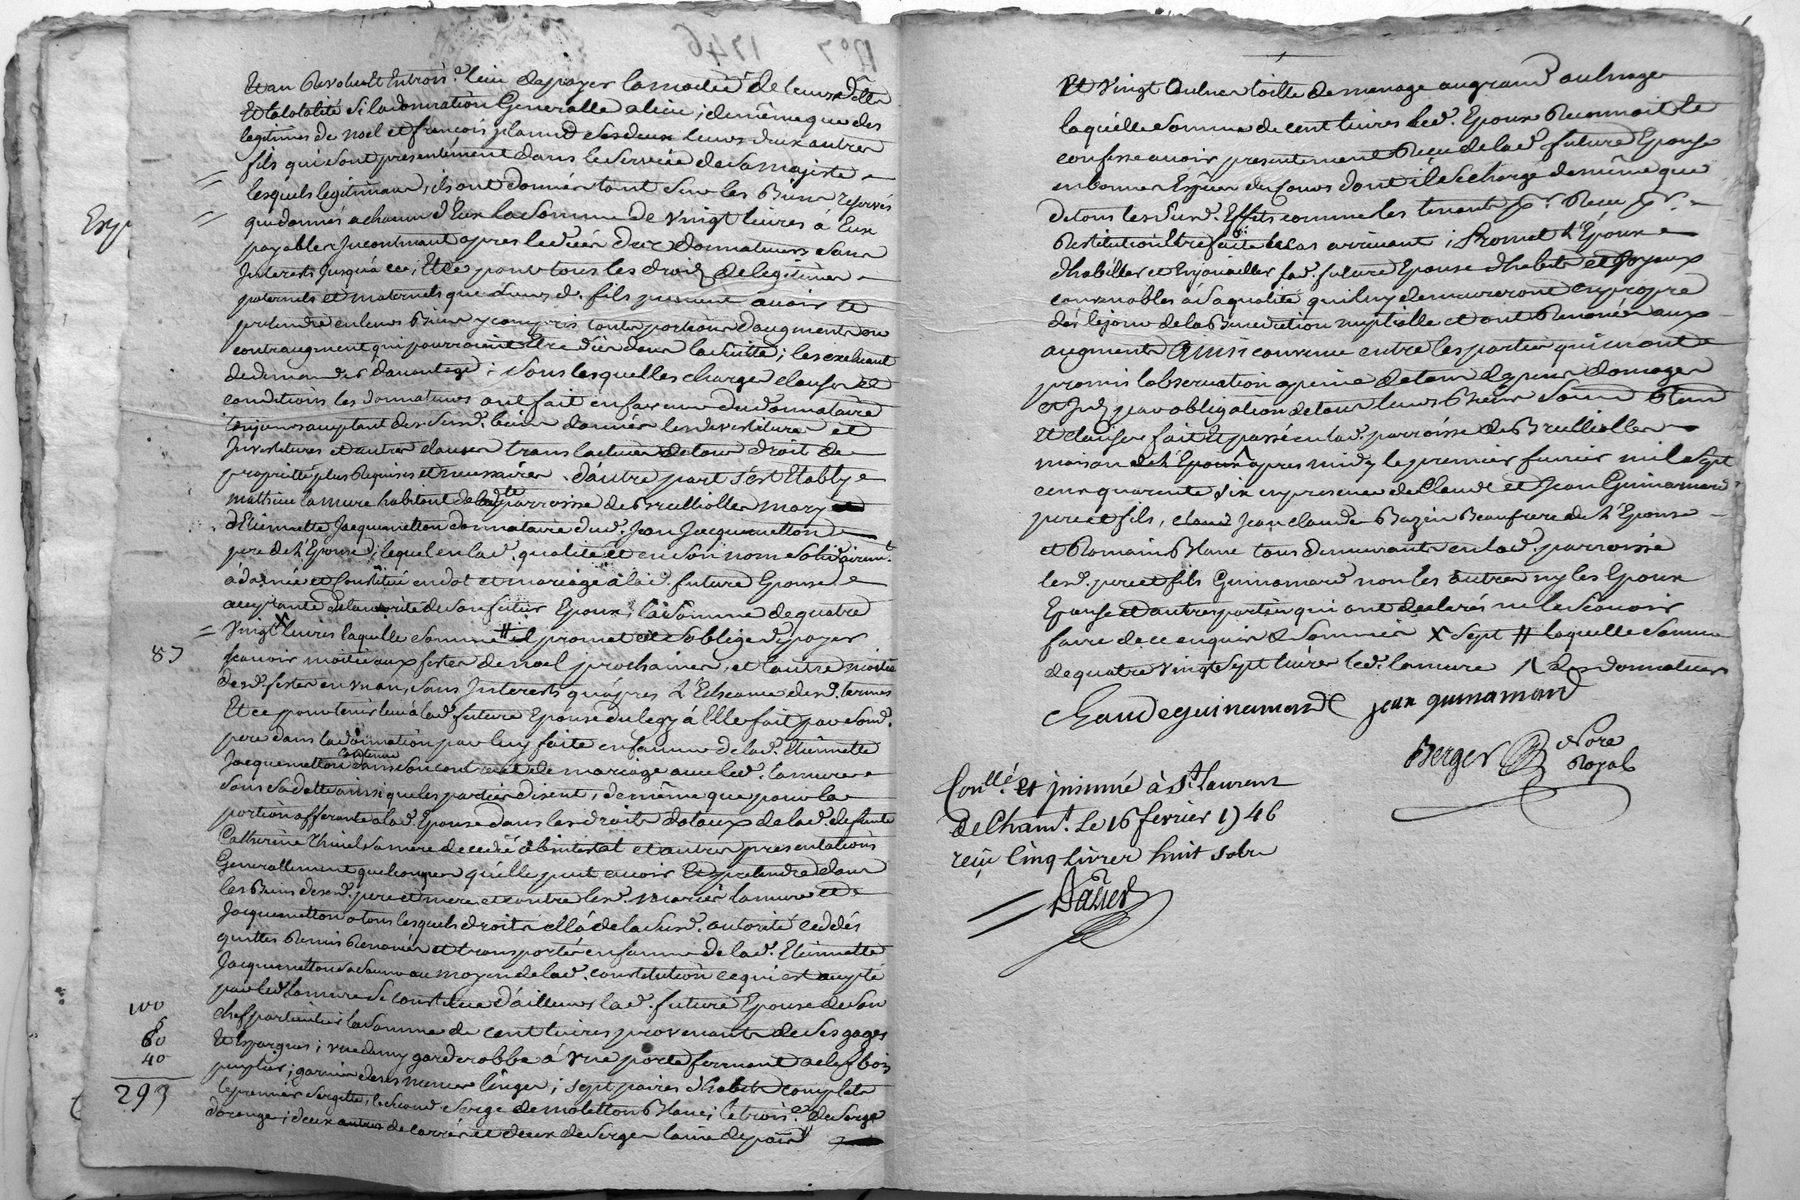 1746
legitimes de noel et françois
fils qui sont presentement dans le service de sa majesté
lesquels legitimaux, ils ont donnés tant sur les Biens reservés
que donnés a chacun d'Eux la somme de vingt livres à Eux
payables Incontinant apres le decés des donnateurs sans
Interests jusqu'a ce; Et ce pour tous les droits de legitimes
paternels et maternels que leurs d. fils peuvent avoir et
pretendre en leurs Biens y compris toutes portions d'augments ou
contraugment qui pourroient Etre dües dans la suitte; les excluant
de demander d'avantage; sous lesquelles charges clauses et
conditions les donnateurs ont fait en faveur du donnataire
Investitures et autres clauses translatives de tout droit de
proprieté plus Requises et necessaires. d'autre part s'est Etably
mathieu lamure habitant de lad.te parroisse de Brullioles mary
d'Etiennette Jacquemetton donnataire dud. Jean Jacquemetton
pere de l'Epouse; lequel en lad. qualité et en son nom solidairemt.
à donné et Constitué en dot et mariage à lad. future Epouse
acceptante de l'autorité de son futur Epoux, la somme de quatre
Vingt X livres laquelle somme # il promet et s'oblige de payer
87
scavoir moitié aux festes de noel prochaines, et l'autre moitié
desd. festes en un an, sans Interests qu'apres l'Echeance desd. termes
Et ce pour tenir lieu à lad. future Epouse du legs à Elle fait par sond.
pere dans la donnation par luy faite en faveur de lad. Etiennette
Jacquemetton contenue dans son contract de mariage avec led. lamure
sans sa dette ainsi que les parties disent, de même que pour la
portion afferante a lad. Epouse dans les droits dotaux de lad. defunte
Catherine Thinel sa mere decedée abintestat et autres pretentions
Generallement quelconques qu'elle peut avoir Et pretendre dans
les Biens desd. pere et mere et contre les d. mariés lamure et
Jacquemetton a tous lesquels droits elle a de la susd. autorité cedés
quittés Remis Renoncés et transportés en faveur de lad. Etiennette
Jacquemetton sa soeur au moyen de lad. constitution ce qui est accepté
par led. lamure Se constitue d'ailleurs lad. future Epouse de son
chef particulier la somme de cent livres provenants de ses gages
100
Et Epargnes; une damy garderobbe à une porte fermant a clef bois
60
40
293
peuplier; garnie de ses menus linges; sept paires d'habits complets
le premier Sergette, le second Serge de moletton Blanc; le trois.e de Serge
d'orange; deux autres de carrés et deux de Serge laine de païs #
Et vingt Aulnes toille de menage au grand aulnage
laquelle somme de cent livres led. Epoux Reconnoit et
confesse avoir presentement Reçu de lad. future Epouse
en bonnes Espéces du Cours dont il se charge de même que
de tous les susd. Effets comme les tenants pr. Reçu pr.
Restitution Etre faite le cas arrivant; Promet l'Epoux
d'habiller et Enjoüailler sad. future Epouse d'habits et joyaux
convenables à sa qualité qui luy demeureront en propre
dés le jour de la Benediction nuptialle et ont Renoncés aux
augments Ainsi convenu entre les parties qui en ont
promis l'observation a peine de tous depens domages
et Int. par obligation de tous leurs Biens soum. Renon.
Et clauses fait Et passé en lad. parroisse de Brullioles
maison de l'Epouse apres midy le premier fevrier mil sept
cens quarente six en presence de Claude et Jean Guinamard
pere et fils, Jean claude Bazin Beaufrere de l'Epouse
et Romain Blanc tous demeurants en lad. parroisse
lesd. pere et fils Guinamard non les autres ny les Epoux
Epouse et autres parties qui ont declarés ne le scavoir
faire de ce enquis & sommés X sept # laquelle somme
de quatre vingt sept livres led. lamure
Claude guinamard jean guinamard
Berger Nore
Royal
Conllé. et jnsinué à st. Laurent
de Cham.t Le 16 fevrier 1746
reçu Cinq livres huit sols